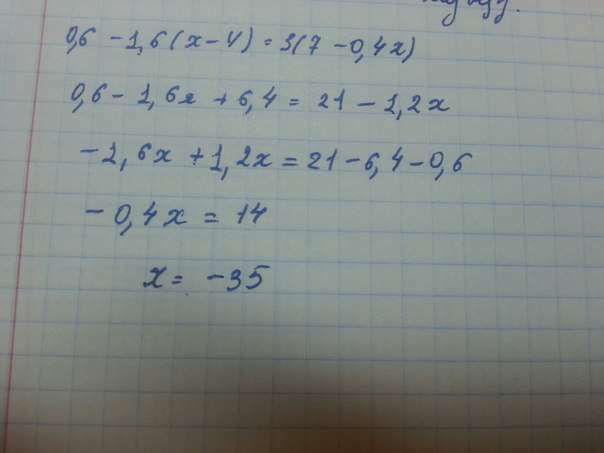 0,6 - 1,6(x - 4) = 3(7 - 0,4x)
0,6 - 1,6x + 6,4 = 21 - 1,2x
-1,6x + 1,2x = 21 - 6,4 - 0,6
-0,4x = 14
x = -35